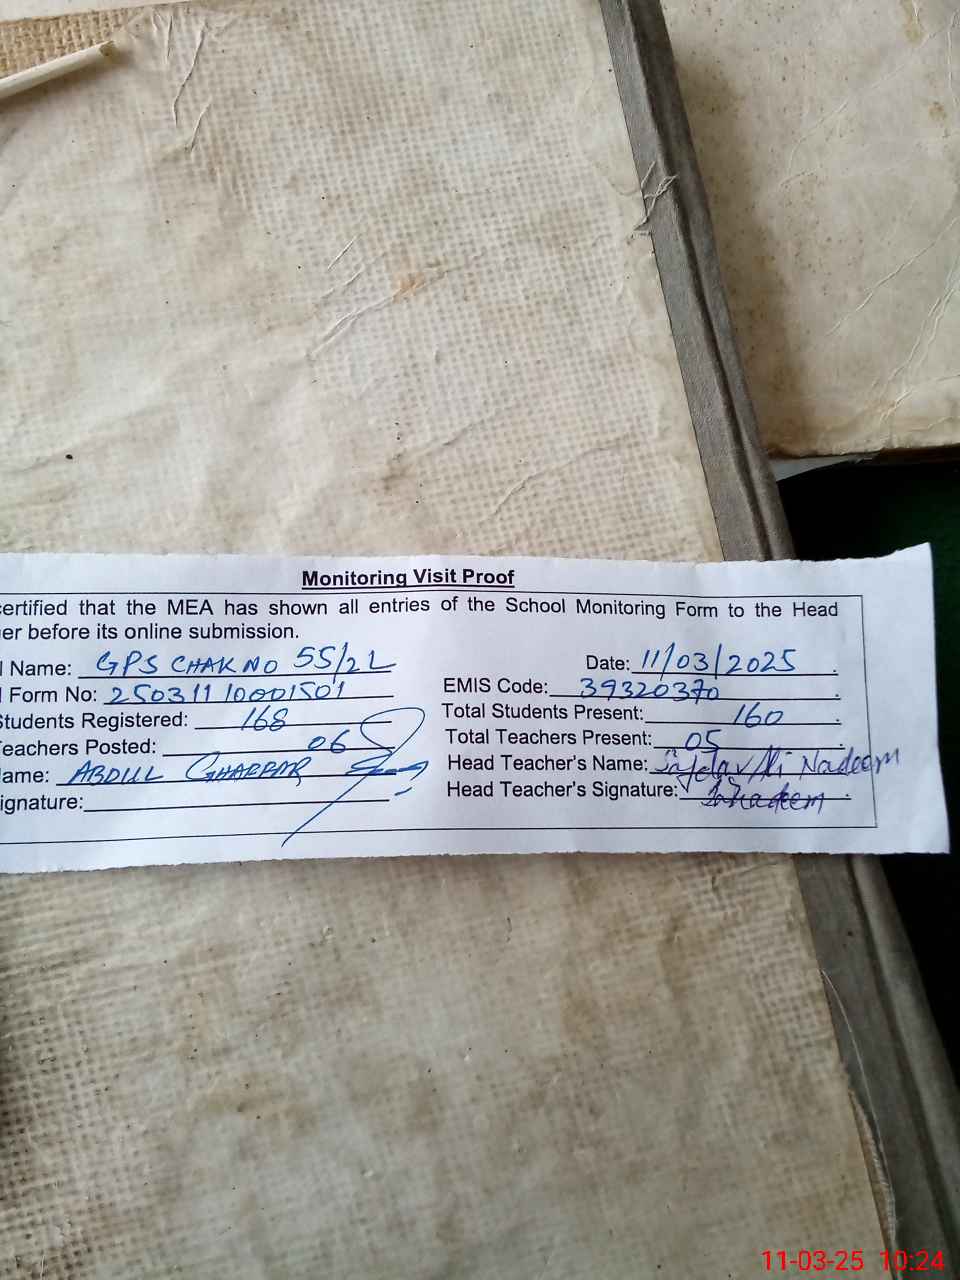 Monitoring Visit Proof
certified that the MEA has shown all entries of the School Monitoring Form to the Head
er before its online submission.
l Name: GPS CHAK NO 55/2L Date: 11/03/2025
l Form No: 25031110001501 EMIS Code: 39320370
Students Registered: 168 Total Students Present: 160
Teachers Posted: 06 Total Teachers Present: 05
Name: ABDUL GHAFFAR Head Teacher's Name: Nadeem
ignature: Head Teacher's Signature:
11-03-25 10:24